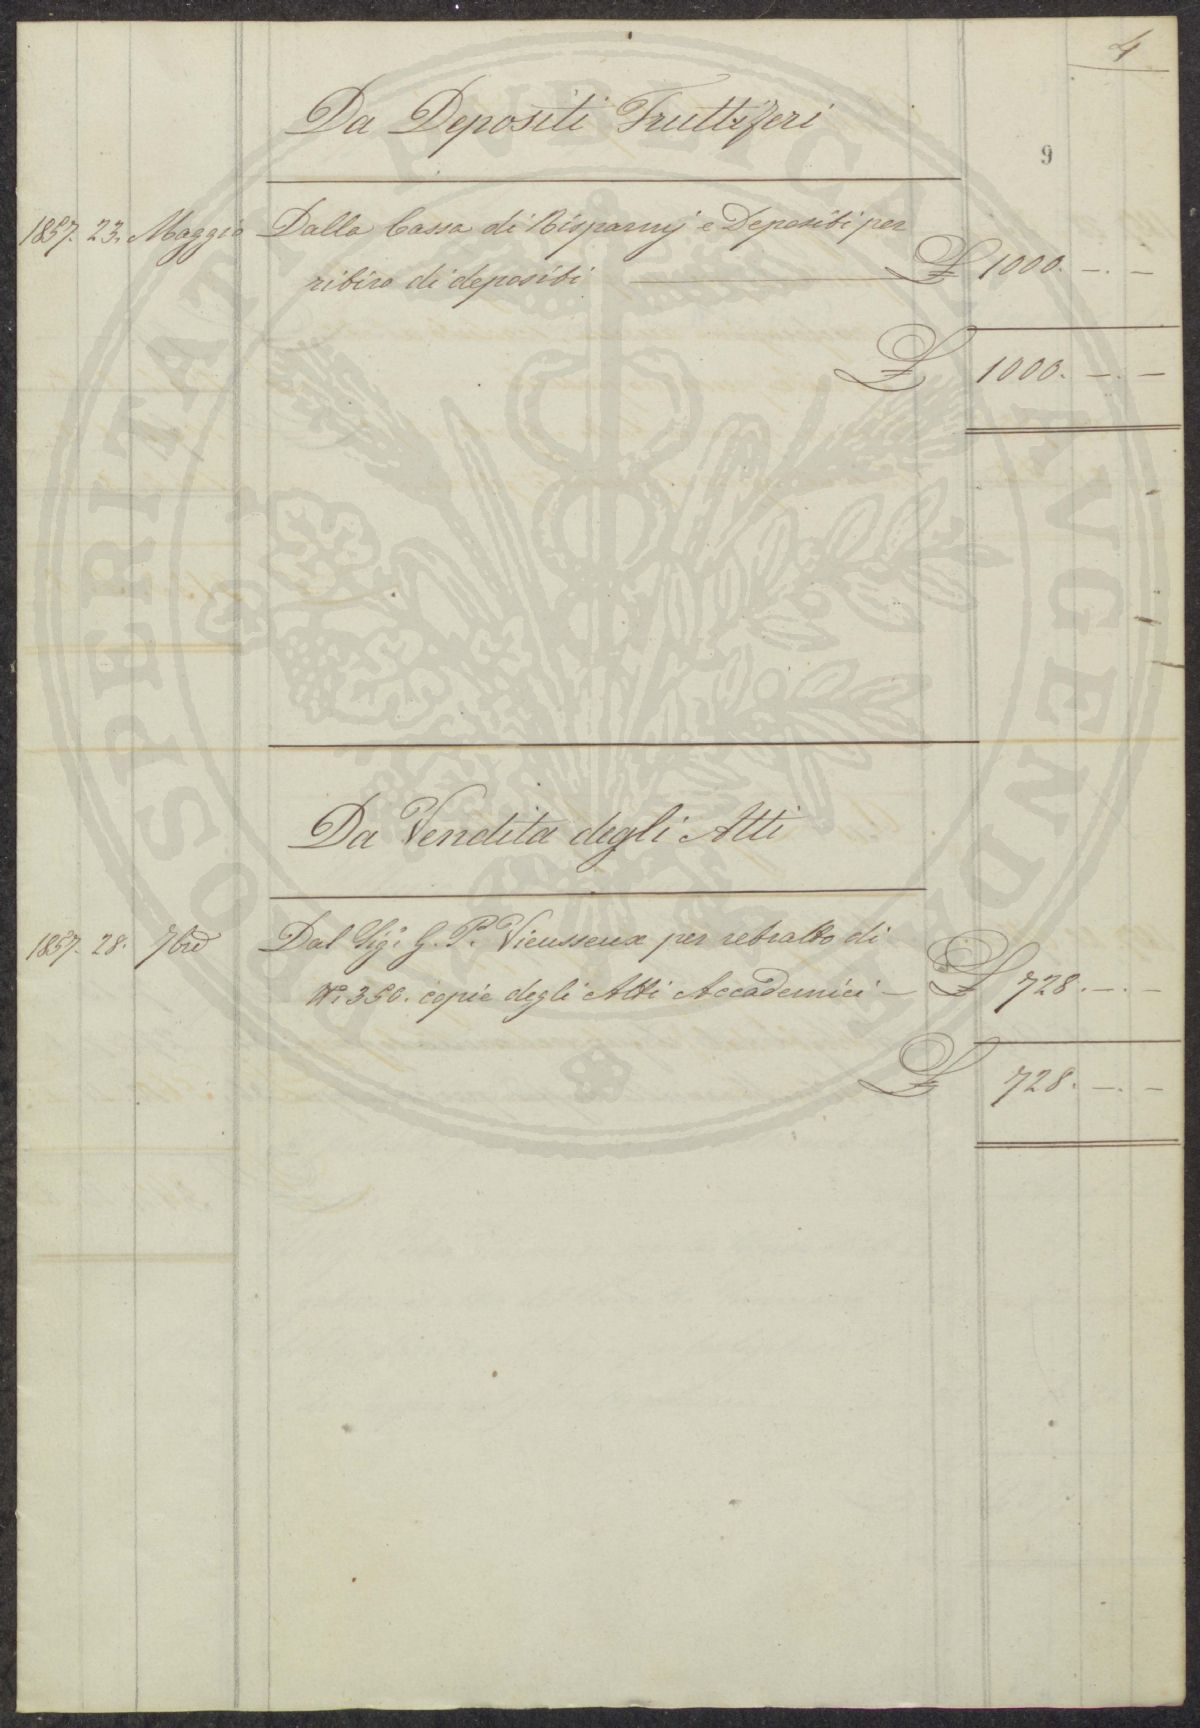 4
Da Depositi Fruttiferi
9
1857. 23. Maggio Dalla Cassa di Risparmj e Depositi per
ritiro di depositi £ 1000. -. -
£ 1000. -. -
Da Vendita degli Atti
1857. 28. 7bre Dal Sigr. G. P. Vieusseux per retratto di
No. 350. copie degli Atti Accademici - £ 728. -. -
£ 728. -. -
PROSPERITATI PUBLICAE AUGENDAE